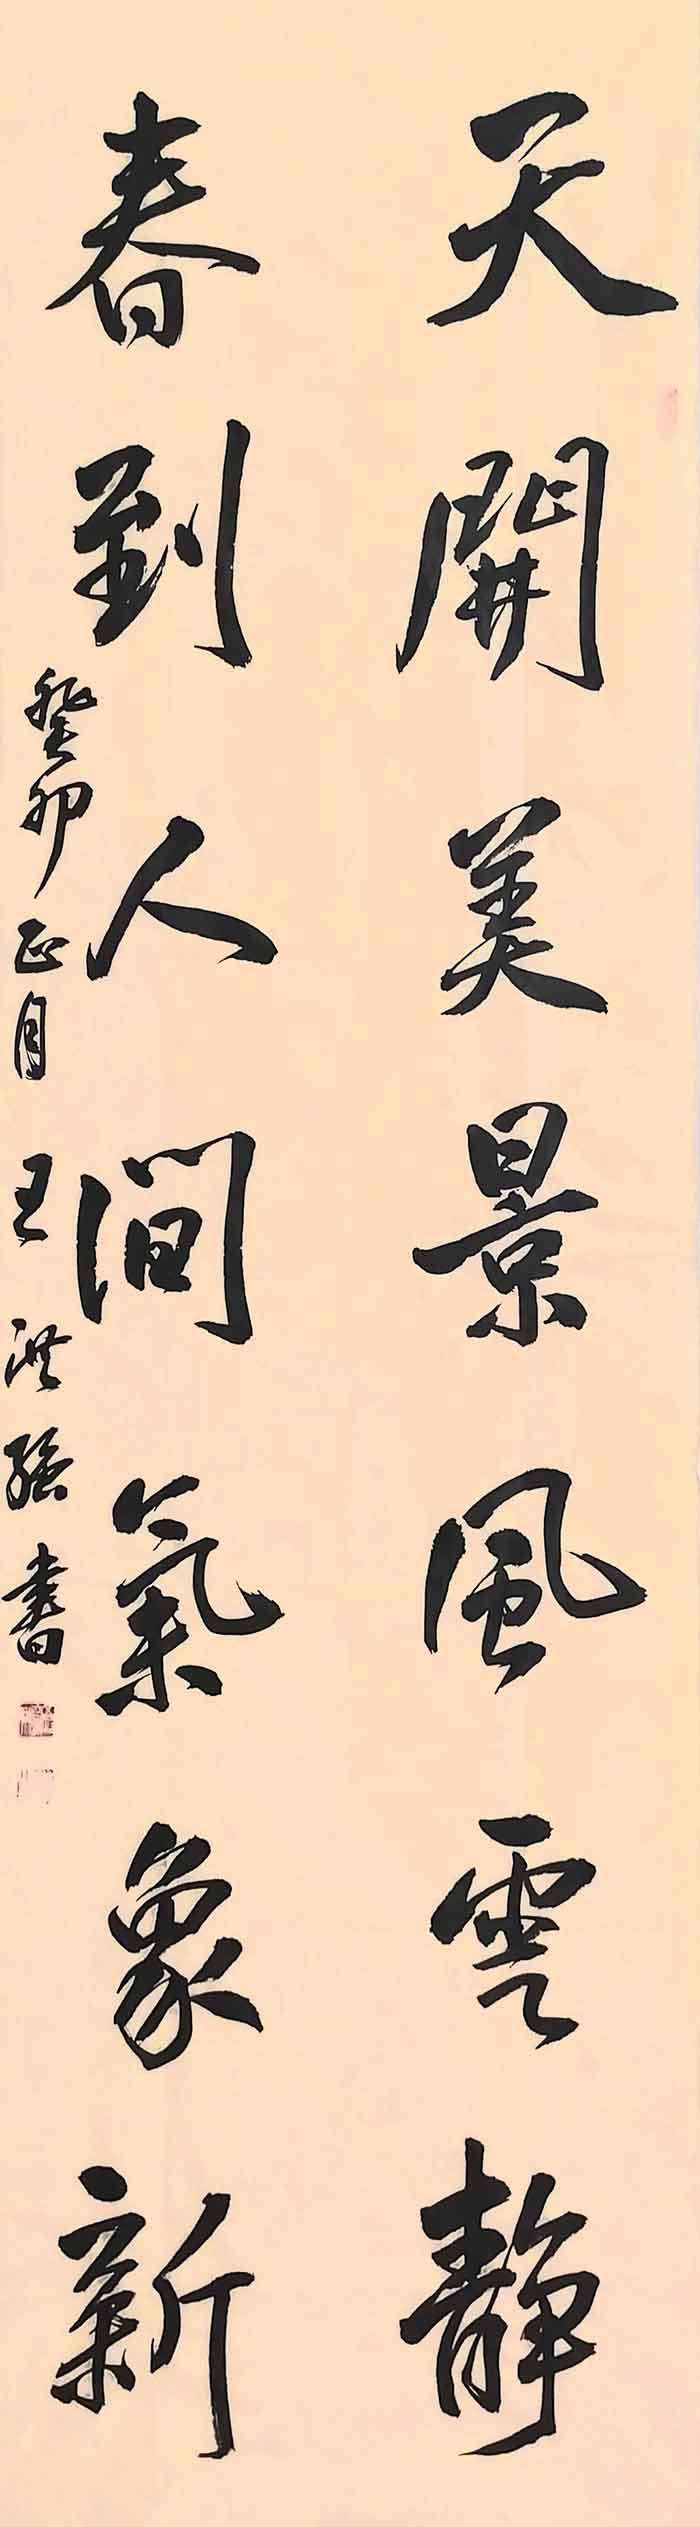 天開美景風雲靜
春到人間氣象新
癸卯正月王洪强書